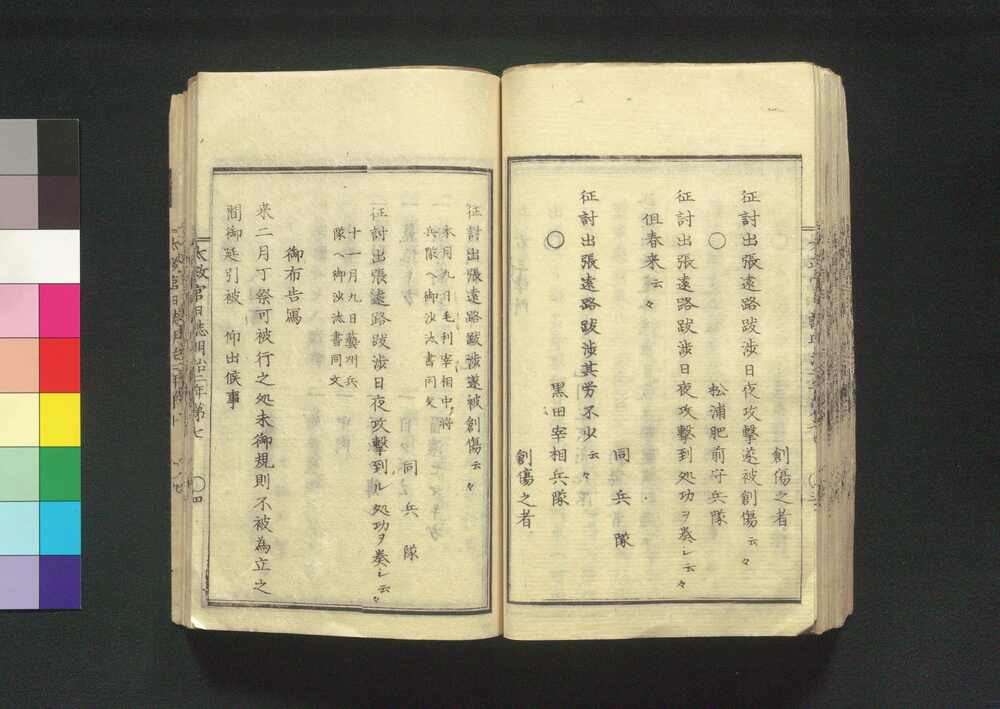 創傷之者
征討出張遠路跋渉日夜攻撃遂被創傷云々
○
松浦肥前守兵隊
征討出張遠路跋渉日夜攻撃到処功ヲ奏シ云々
但春来云々
同兵隊
征討出張遠路跋渉其労不少云々
○
黒田宰相兵隊
創傷之者
征討出張遠路跋渉遂被創傷云々
本月九日毛利宰相中将
兵隊ヘ御沙汰書同文
同兵隊
征討出張遠路跋渉日夜攻撃到ル処功ヲ奏シ云々
十一月九日藝州兵
隊ヘ御沙汰書同文
御布告写
来二月丁祭可被行之処未御規則不被為立之
間御延引被 仰出候事
太政官日誌明治二年第七
○四